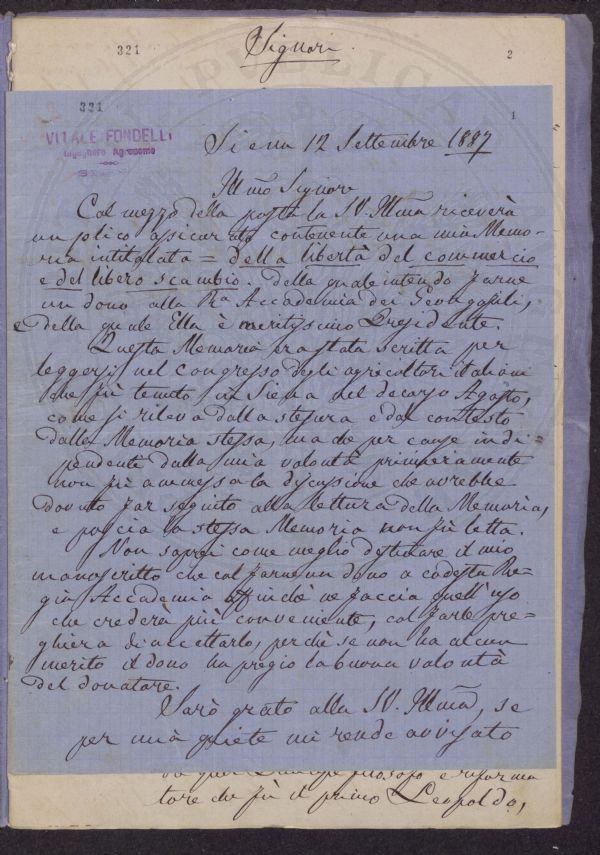 321
Signori
2
321
1
VITALE FONDELLI
Ingegnere Agronomo
Siena 12 Settembre 1887
Illmo Signore
Col mezzo della posta la SV. Illma riceverà
un plico assicurato contenente una mia Memo-
ria intitolata = della libertà del commercio
e del libero scambio. Della quale intendo farne
un dono alla Ra Accademia dei Georgofili,
della quale Ella è meritissimo Presidente.
Questa Memoria era stata scritta per
leggersi nel Congresso degli agricoltori italiani
che fù tenuto in Siena nel decorso Agosto,
come si rileva dalla stesura e dal contesto
della Memoria stessa, ma che per cause indi=
pendente dalla mia volontà primieramente
non fù ammessa la discussione che avrebbe
dovuto far seguito alla lettura della Memoria,
e poscia la stessa Memoria non fù letta.
Non saprei come meglio destinare il mio
manoscritto che col farne un dono a codesta Re=
gia Accademia affinchè ne faccia quell'uso
che crederà più conveniente, col farle pre=
ghiera di accettarlo, perchè se non ha alcun
merito il dono ha pregio la buona volontà
del donatore.
Sarò grato alla SV. Illma, se
per mia quiete mi rende avvisato
filosofo e riforma
tore che fù il primo Leopoldo,